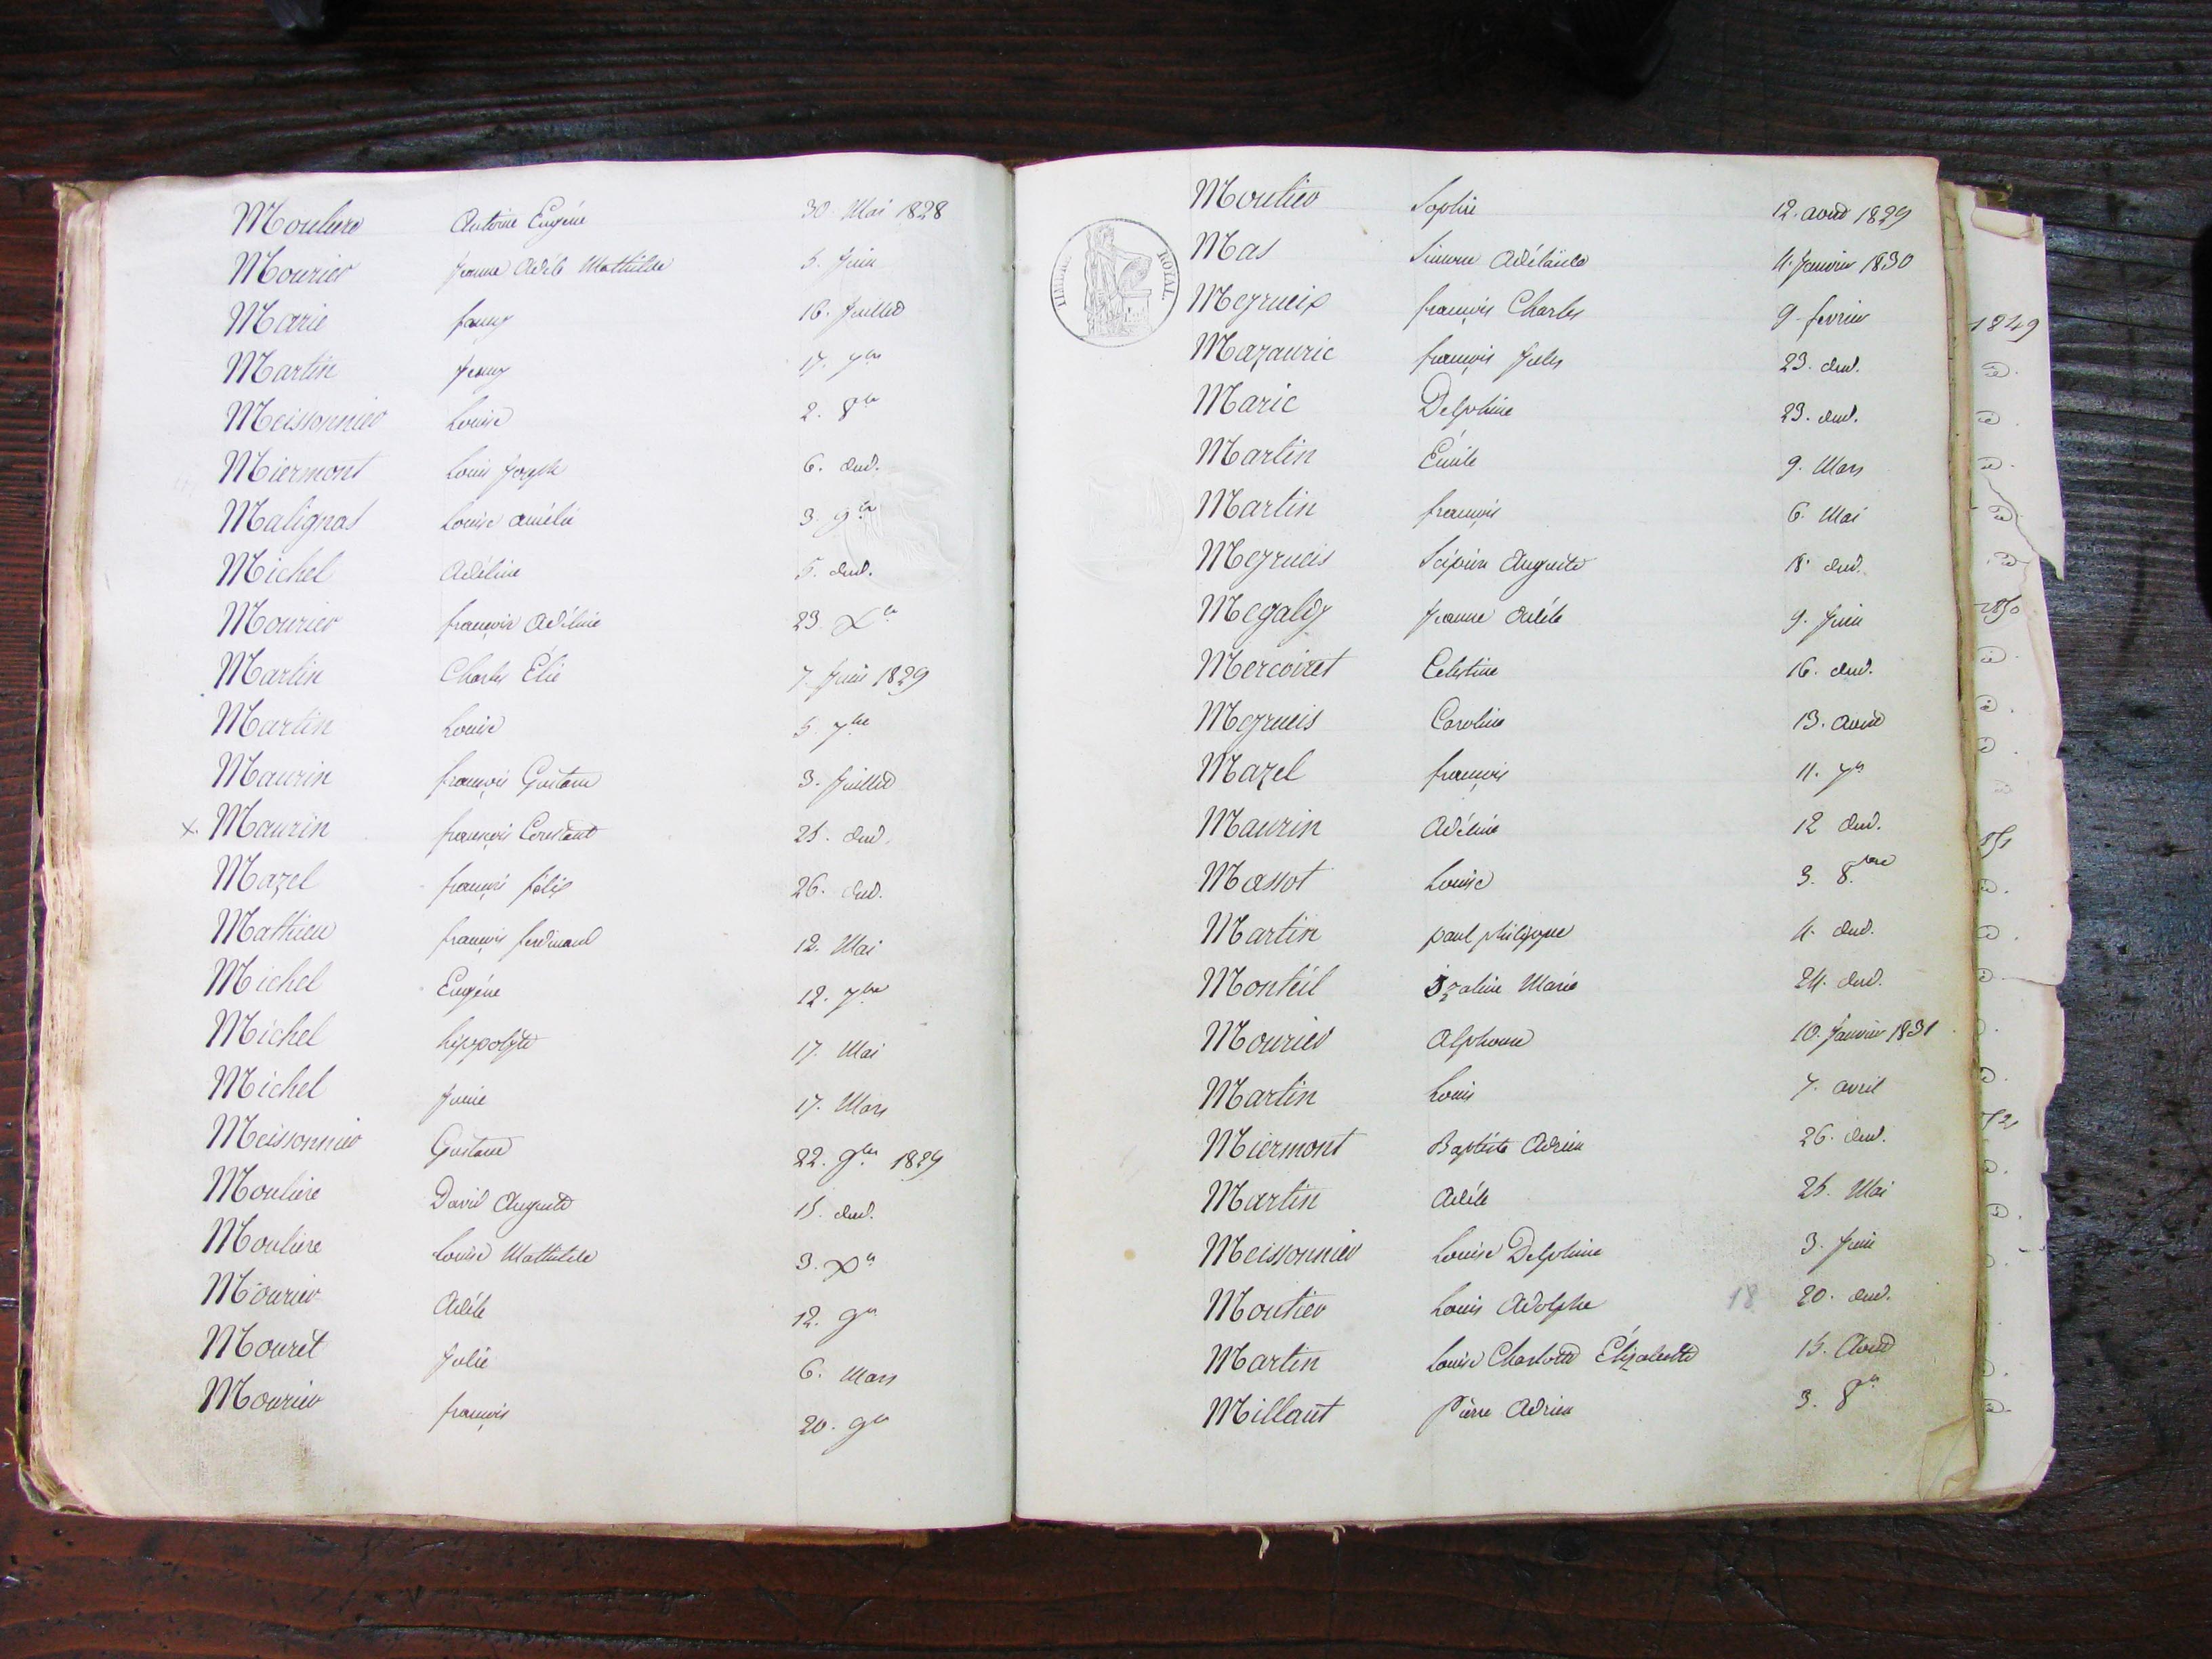 Mouliere Antoine Eugène 30. Mai 1828
Mourier Jeanne Adèle Mathilde 5. Juin
Marie fanny 16. Juillet
Martin fanny 17. 7bre
Meissonnier Louise 2. 8bre
Miermont Louis Joseph 6. dud.
Malignas Louise amélie 3. 9bre
Michel Adéline 5. dud.
Mourier françois Adéline 23. Xbre
Martin Charles Élie 7. Juin 1829
Martin Louise 5. 7bre
Maurin françois Gustave 3. Juillet
x. Maurin françois Constant 25. dud.
Mazel françois félix 26. dud.
Mathieu françois ferdinand 12. Mai
Michel Eugène 12. 7bre
Michel hippolyte 17. Mai
Michel Junie 17. Mars
Meissonnier Gustave 22. 9bre 1829
Mouliere David Auguste 15. dud.
Mouliere Louise Mathilde 3. Xbre
Mourier Adèle 12. 9bre
Mouret Julie 6. Mars
Mourier françois 20. 9bre
TIMBRE ROYAL.
Moutier Sophie 12. aout 1829
Mas Simone Adélaïde 4. Janvier 1830
Meyrueix françois Charles 9. fevrier
Mazauric françois Jules 23. dud.
Marie Delphine 23. dud.
Martin Émile 9. Mars
Martin françois 6. Mai
Meyrueis Scipion Auguste 18. dud.
Megaldy Jeanne Adèle 9. Juin
Mercoiret Celestine 16. dud.
Meyrueis Caroline 13. Aout
Mazel françois 11. 7bre
Maurin Adéline 12 dud.
Massot Louise 3. 8.bre
Martin paul philippe 4. dud.
Monteil Izaline Marie 24. dud.
Mourier Alphonse 10. Janvier 1831
Martin Louis 7. avril
Miermont Baptiste Adrien 26. dud.
Martin Adèle 25. Mai
Meissonnier Louise Delphine 3. Juin
Moutier Louis Adolphe 18 20. dud.
Martin Louise Charlotte Élizabeth 15. Aout
Millaut Pierre Adrien 3. 8bre
1849